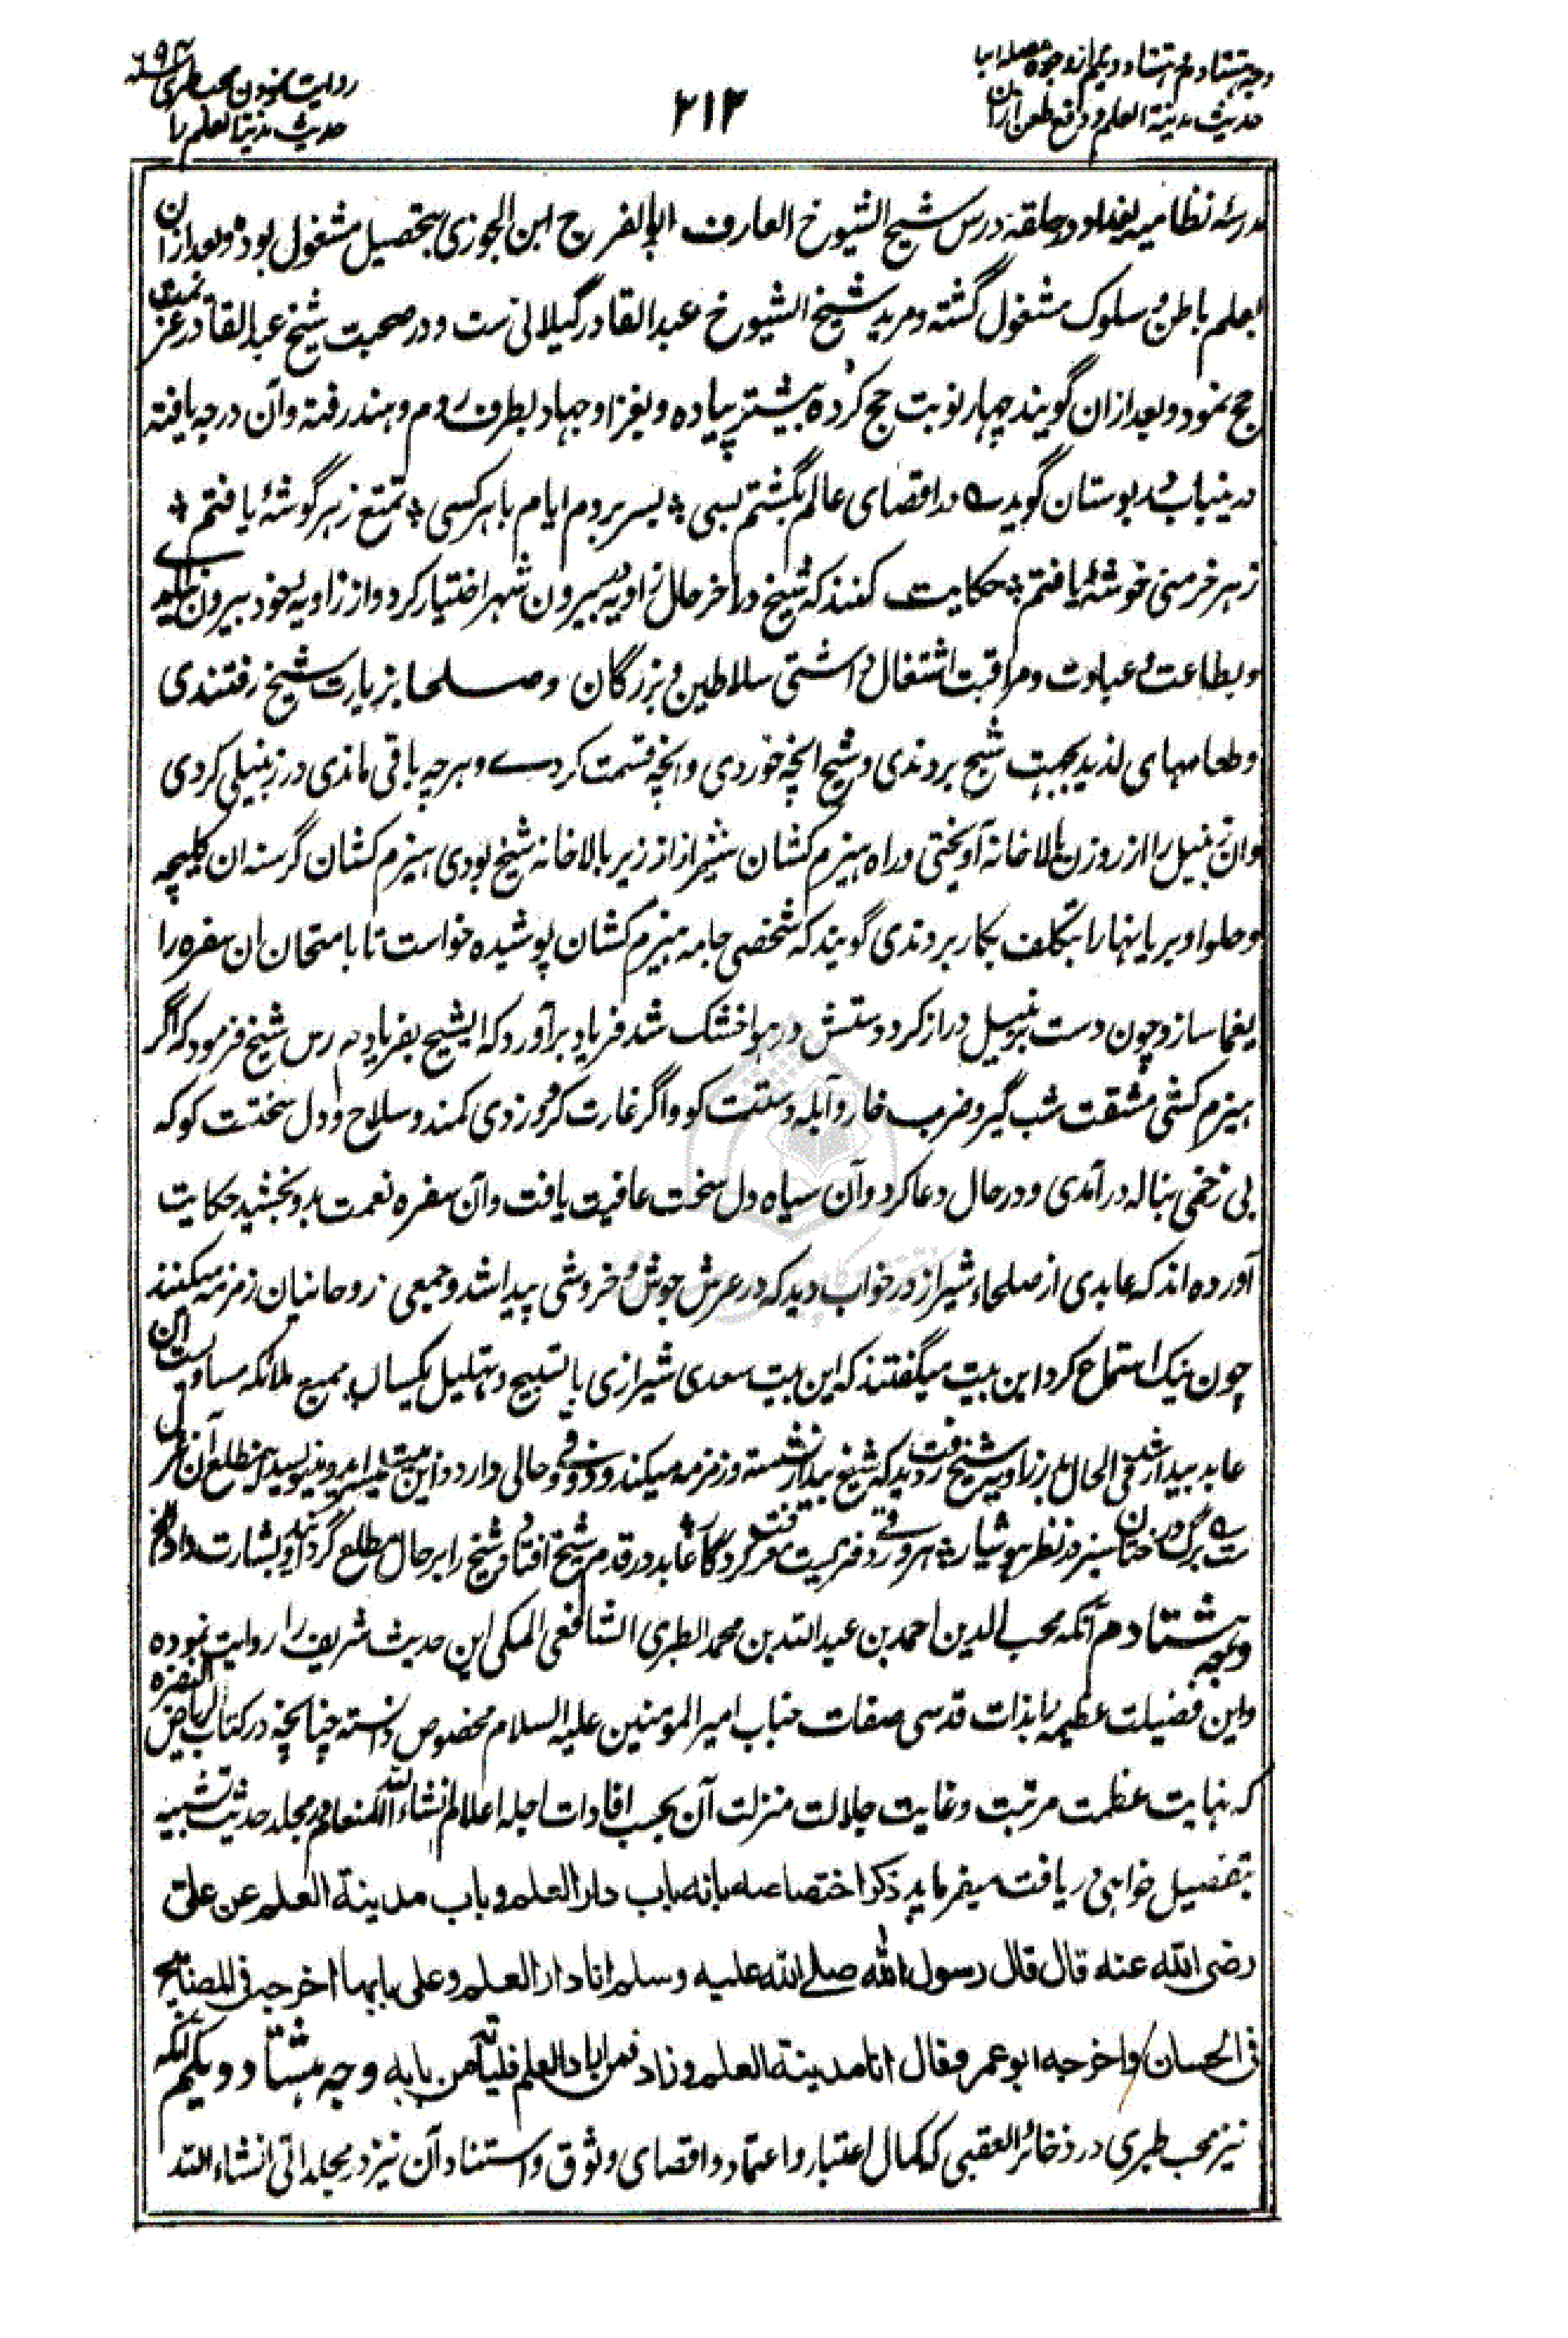 وجه هشتادم و هشتاد و یکم از وجوه مفصله اثبات
حدیث مدینة العلم و دفع طعن از ان
۲۱۳
روایت نمودن محب طبری ۶۹۴
حدیث مدینة العلم را
مدرسهٔ نظامیه بغداد در حلقهٔ درس شیخ الشیوخ العارف ابا الفرح ابن الجوزی بتحصیل مشغول بوده و بعد از ان
بعلم باطن و سلوک مشغول گشته و مرید شیخ الشیوخ عبد القادر گیلانی ست و در صحبت شیخ عبد القادر عزیمت
حج نمود و بعد از ان گویند چهار نوبت حج کرده بیشتر پیاده و بغزا و جهاد بطرف روم و هند رفته و آن درجه یافته
درینباب در بوستان گوید ے در اقصای عالم بگشتم بسی * بسر بردم ایام با هر کسی * تمتع ز هر گوشهٔ یافتم *
ز هر خرمنی خوشهٔ یافتم * حکایت کنند که شیخ در آخر حال زاویه بیرون شهر اختیار کرد و از زاویه خود بیرون نیامدے
و بطاعت و عبادت و مراقبت اشتغال داشتی سلاطین و بزرگان و صلحا بزیارت شیخ رفتندی
و طعامهای لذید بجهت شیخ بردندی و شیخ انچه خوردی و انچه قسمت کردے و هر چه باقی ماندی در زنبیلی کردی
و ان زنبیل را از روزن بالا خانه آویختی و راه هیزم کشان شیراز از زیر بالا خانه شیخ بودی هیزم کشان گرسنه ان کلیچه
و حلوا و بریانیها را بتکلف بکار بردندی گویند که شخصی جامه هیزم کشان پوشیده خواست تا با متحان ان سفره را
یغما سازد چون دست بزنبیل دراز کرد دستش در هوا خشک شد فریاد برآورد که ایشیخ بفریادم رس شیخ فرمود که اگر
هیزم کشی مشقت شب گیر و ضرب خار و آبله دستت کو و اگر غارت گر و دزدی کمند و سلاح و دل سختت کو که
بی زخمی بناله درآمدی و در حال دعا کرد و آن سیاه دل سخت عافیت یافت و آن سفره نعمت بدو بخشید حکایت
آورده اند که عابدی از صلحاء شیراز در خواب دید که در عرش جوش و خروشی پیدا شد و جمعی روحانیان زمزمه میکنند
چون نیک استماع کرد این بیت میگفتند که این بیت سعدی شیرازی با تسبیح و تهلیل یکساله جمیع ملائکه مساویست این
عابد بیدار شد فی الحال بر زاویه شیخ رفت دید که شیخ بیدار نشسته و زمزمه میکند و ذوقے و حالی دارد و این بیت میسراید و مینویسد مطلع آن غزل
ے برگ درختان سبز در نظر هوشیار * هر ورقے دفتریست معرفت کردگار * عابد در قدم شیخ افتاد و شیخ را بر حال مطلع گردانید و بشارت داد
وجه هشتادم آنکه محب الدین احمد بن عبد الله بن محمد الطبری الشافعی المکی این حدیث شریف را روایت نموده
و این فضیلت عظیمه را بذات قدسی صفات جناب امیر المومنین علیه السلام مخصوص دانسته چنانچه در کتاب الریاض النضره
که نهایت عظمت مرتبت و غایت جلالت منزلت آن بحسب افادات اجله اعلام انشاء الله المنعام در مجلد حدیث تشبیه
بتفصیل خواهی دریافت میفرماید ذکر اختصاصه بانه باب دار العلم و باب مدینة العلم عن علی
رضی الله عنه قال قال رسول الله صلے الله علیه وسلم انا دار العلم و علی بابها اخرجه فی المصابیح
فی الحسان و اخرجه ابو عمر و قال انا مدینة العلم و زاد فمن اراد العلم فلیأته من بابه وجه هشتاد و یکم آنکه
نیز محب طبری در ذخائر العقبی که کمال اعتبار و اعتماد و اقصای وثوق و استناد آن نیز در مجلد اتی انشاء الله